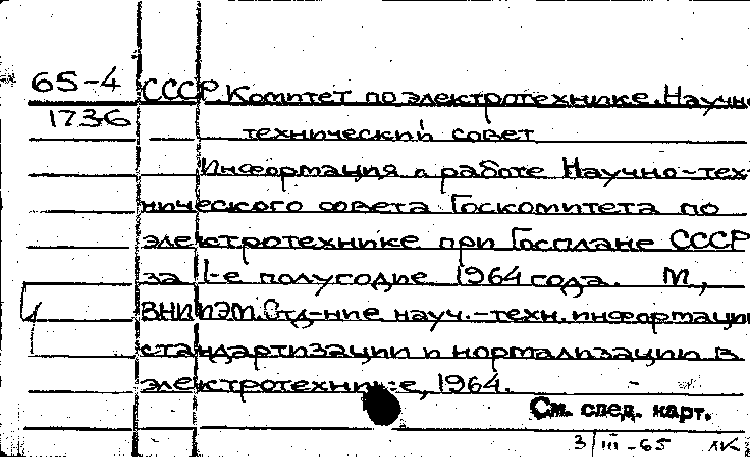 65-4 СССР. Комитет по электротехнике. Научно
1736
технический совет
Информация о работе Научно-тех-
нического совета Госкомитета по
электротехнике при Госплане СССР
за 1-е полугодие 1964 года. М.,
ВНИИЭМ. Отд-ние науч.-техн. информации
стандартизации и нормализации в
электротехнике, 1964.
См. след. карт.
3/III-65